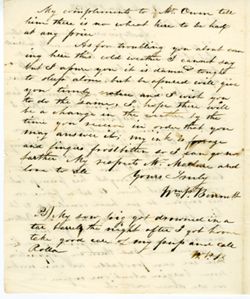 My compliments to Mr. Owen tell
him there is no wheat here to be had
at any price
As for troubling you about com
ing here this cold weather I cannot say
but I advise you it is damned tough
to sleep alone but experience will give
you timely notice and I wish you
to do the same, I hope there will
be a change in the weather by the
time you receive in order that you
may answer it, my is
and fingers frostbitten so I can go no
farther My respects Mr. Maclure and
love to all
Yours Truly
Wm P. Bennett
P.S. My sow pig got drowned in a
tar barrel the night after I got home
take good care of my pup and call
Rolla
W.P.B.